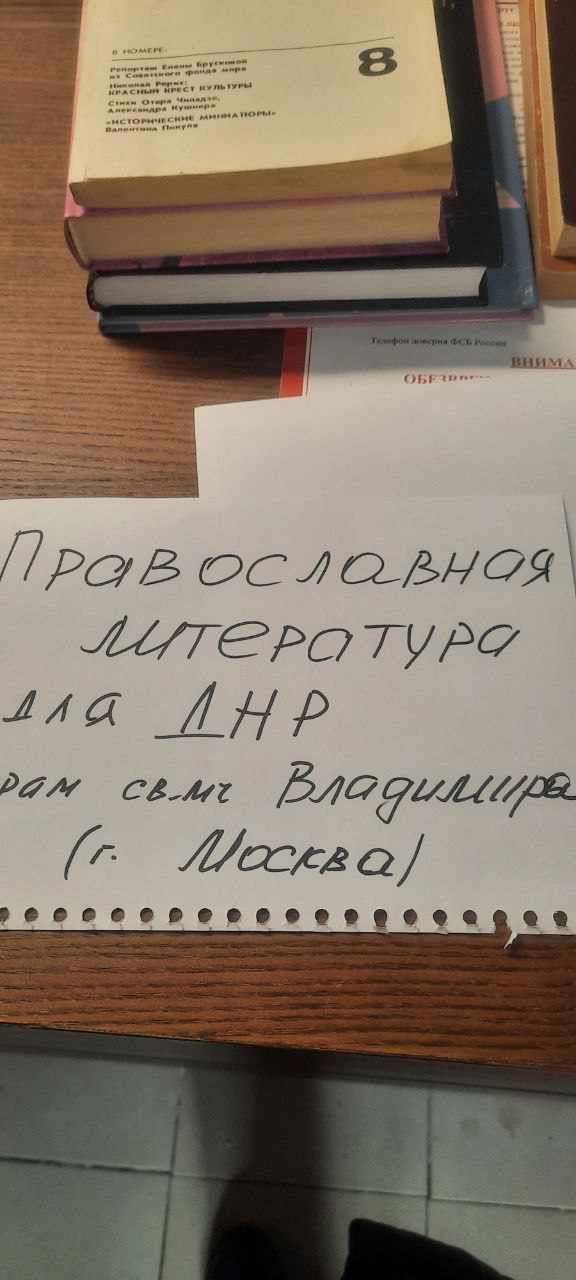 В НОМЕРЕ:
Репортаж Елены Брусковой
из Советского фонда мира
Николай Рерих:
КРАСНЫЙ КРЕСТ КУЛЬТУРЫ
Стихи Отара Чиладзе,
Александра Кушнера
«ИСТОРИЧЕСКИЕ МИНИАТЮРЫ»
Валентина Пикуля
8
Телефон доверия ФСБ России
ВНИМА
Православная
литература
для ДНР
рам св-мч Владимира
(г. Москва)